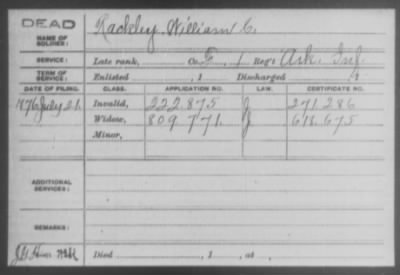 DEAD
NAME OF SOLDIER: Rackley, William C.
SERVICE: Late rank, Co. F, 1 Reg't Ark. Inf.
TERM OF SERVICE: Enlisted , 1 Discharged , 1
DATE OF FILING. CLASS. APPLICATION NO. LAW. CERTIFICATE NO.
1876 July 21. Invalid, 222 875 J 271 286
Widow, 809 771. J 618.675
Minor,
ADDITIONAL SERVICES:
REMARKS:
Died , 1 , at .